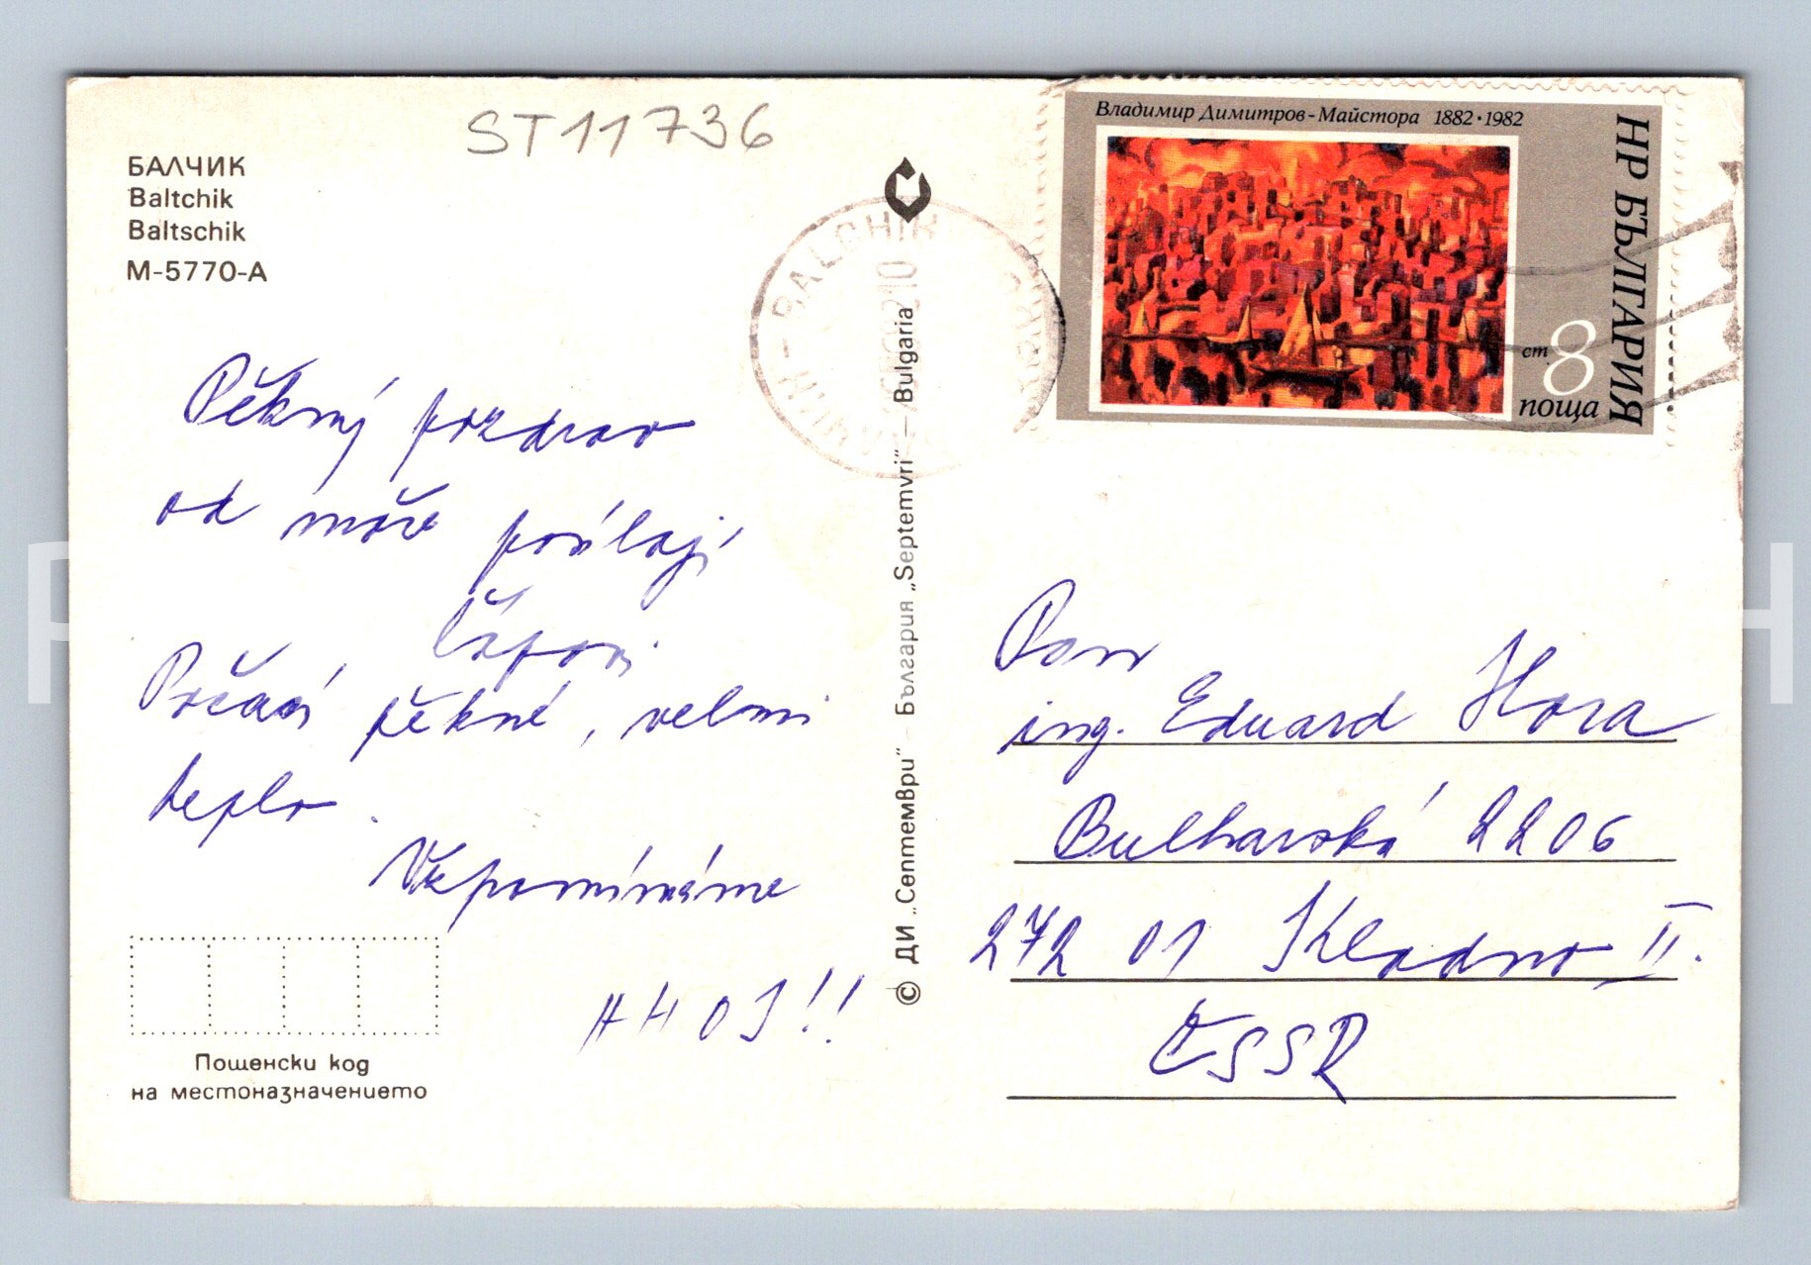 ST11736
БАЛЧИК
Baltchik
Baltschik
М-5770-А
Pěkný pozdrav
od moře posílají
Počasí pěkné, velmi
teplo.
Vzpomínáme
AHOJ!!
Пощенски код
на местоназначението
© ДИ „Септември“ – България „Septemvri“ – Bulgaria
BALCHIK
Владимир Димитров-Майстора 1882·1982
НР БЪЛГАРИЯ
ст 8
поща
Pan
ing. Eduard Hora
Bulharská 2206
272 01 Kladno II.
ČSSR